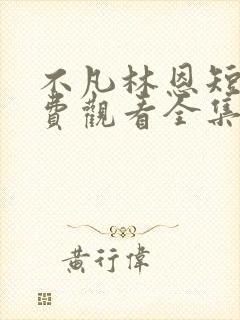 不凡林恩短
費觀看全集
黃行偉